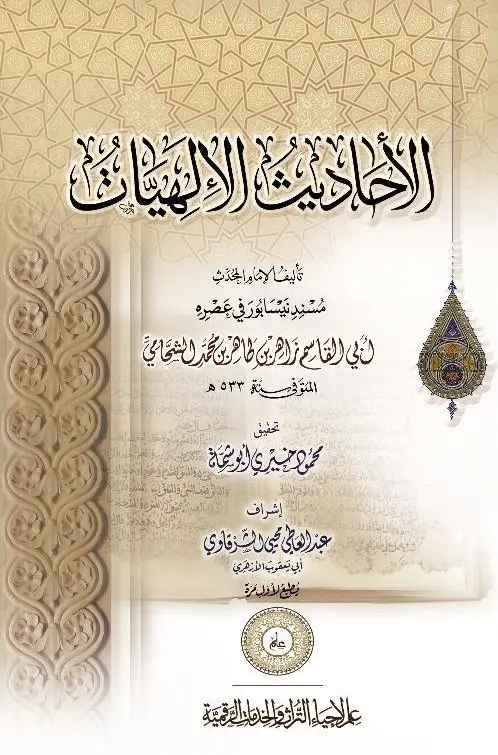 الأحاديث الإلهيات
تأليف الإمام المحدث
مسند نيسابور في عصره
أبي القاسم زاهر بن طاهر بن محمد الشحامي
المتوفى سنة ٥٣٣ هـ
تحقيق
محمود خيري أبو شمة
إشراف
عبد العاطي محيي الشرقاوي
أبي يعقوب الأزهري
يطبع لأول مرة
علم
علم لإحياء التراث والخدمات الرقمية